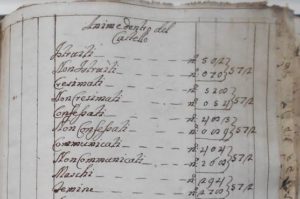 Anime dentro del
Castello
Istruiti — n.° 502
Non Istruiti — n.° 070 } 572
Cresimati — n.° 520
Non Cresimati — n.° } 572
Confessati — n.°
Non Confessati — n.° } 572
Communicati — n.° 404
Non Communicati — n.° } 572
Maschi — n.° 294
Femine — n.° } 572